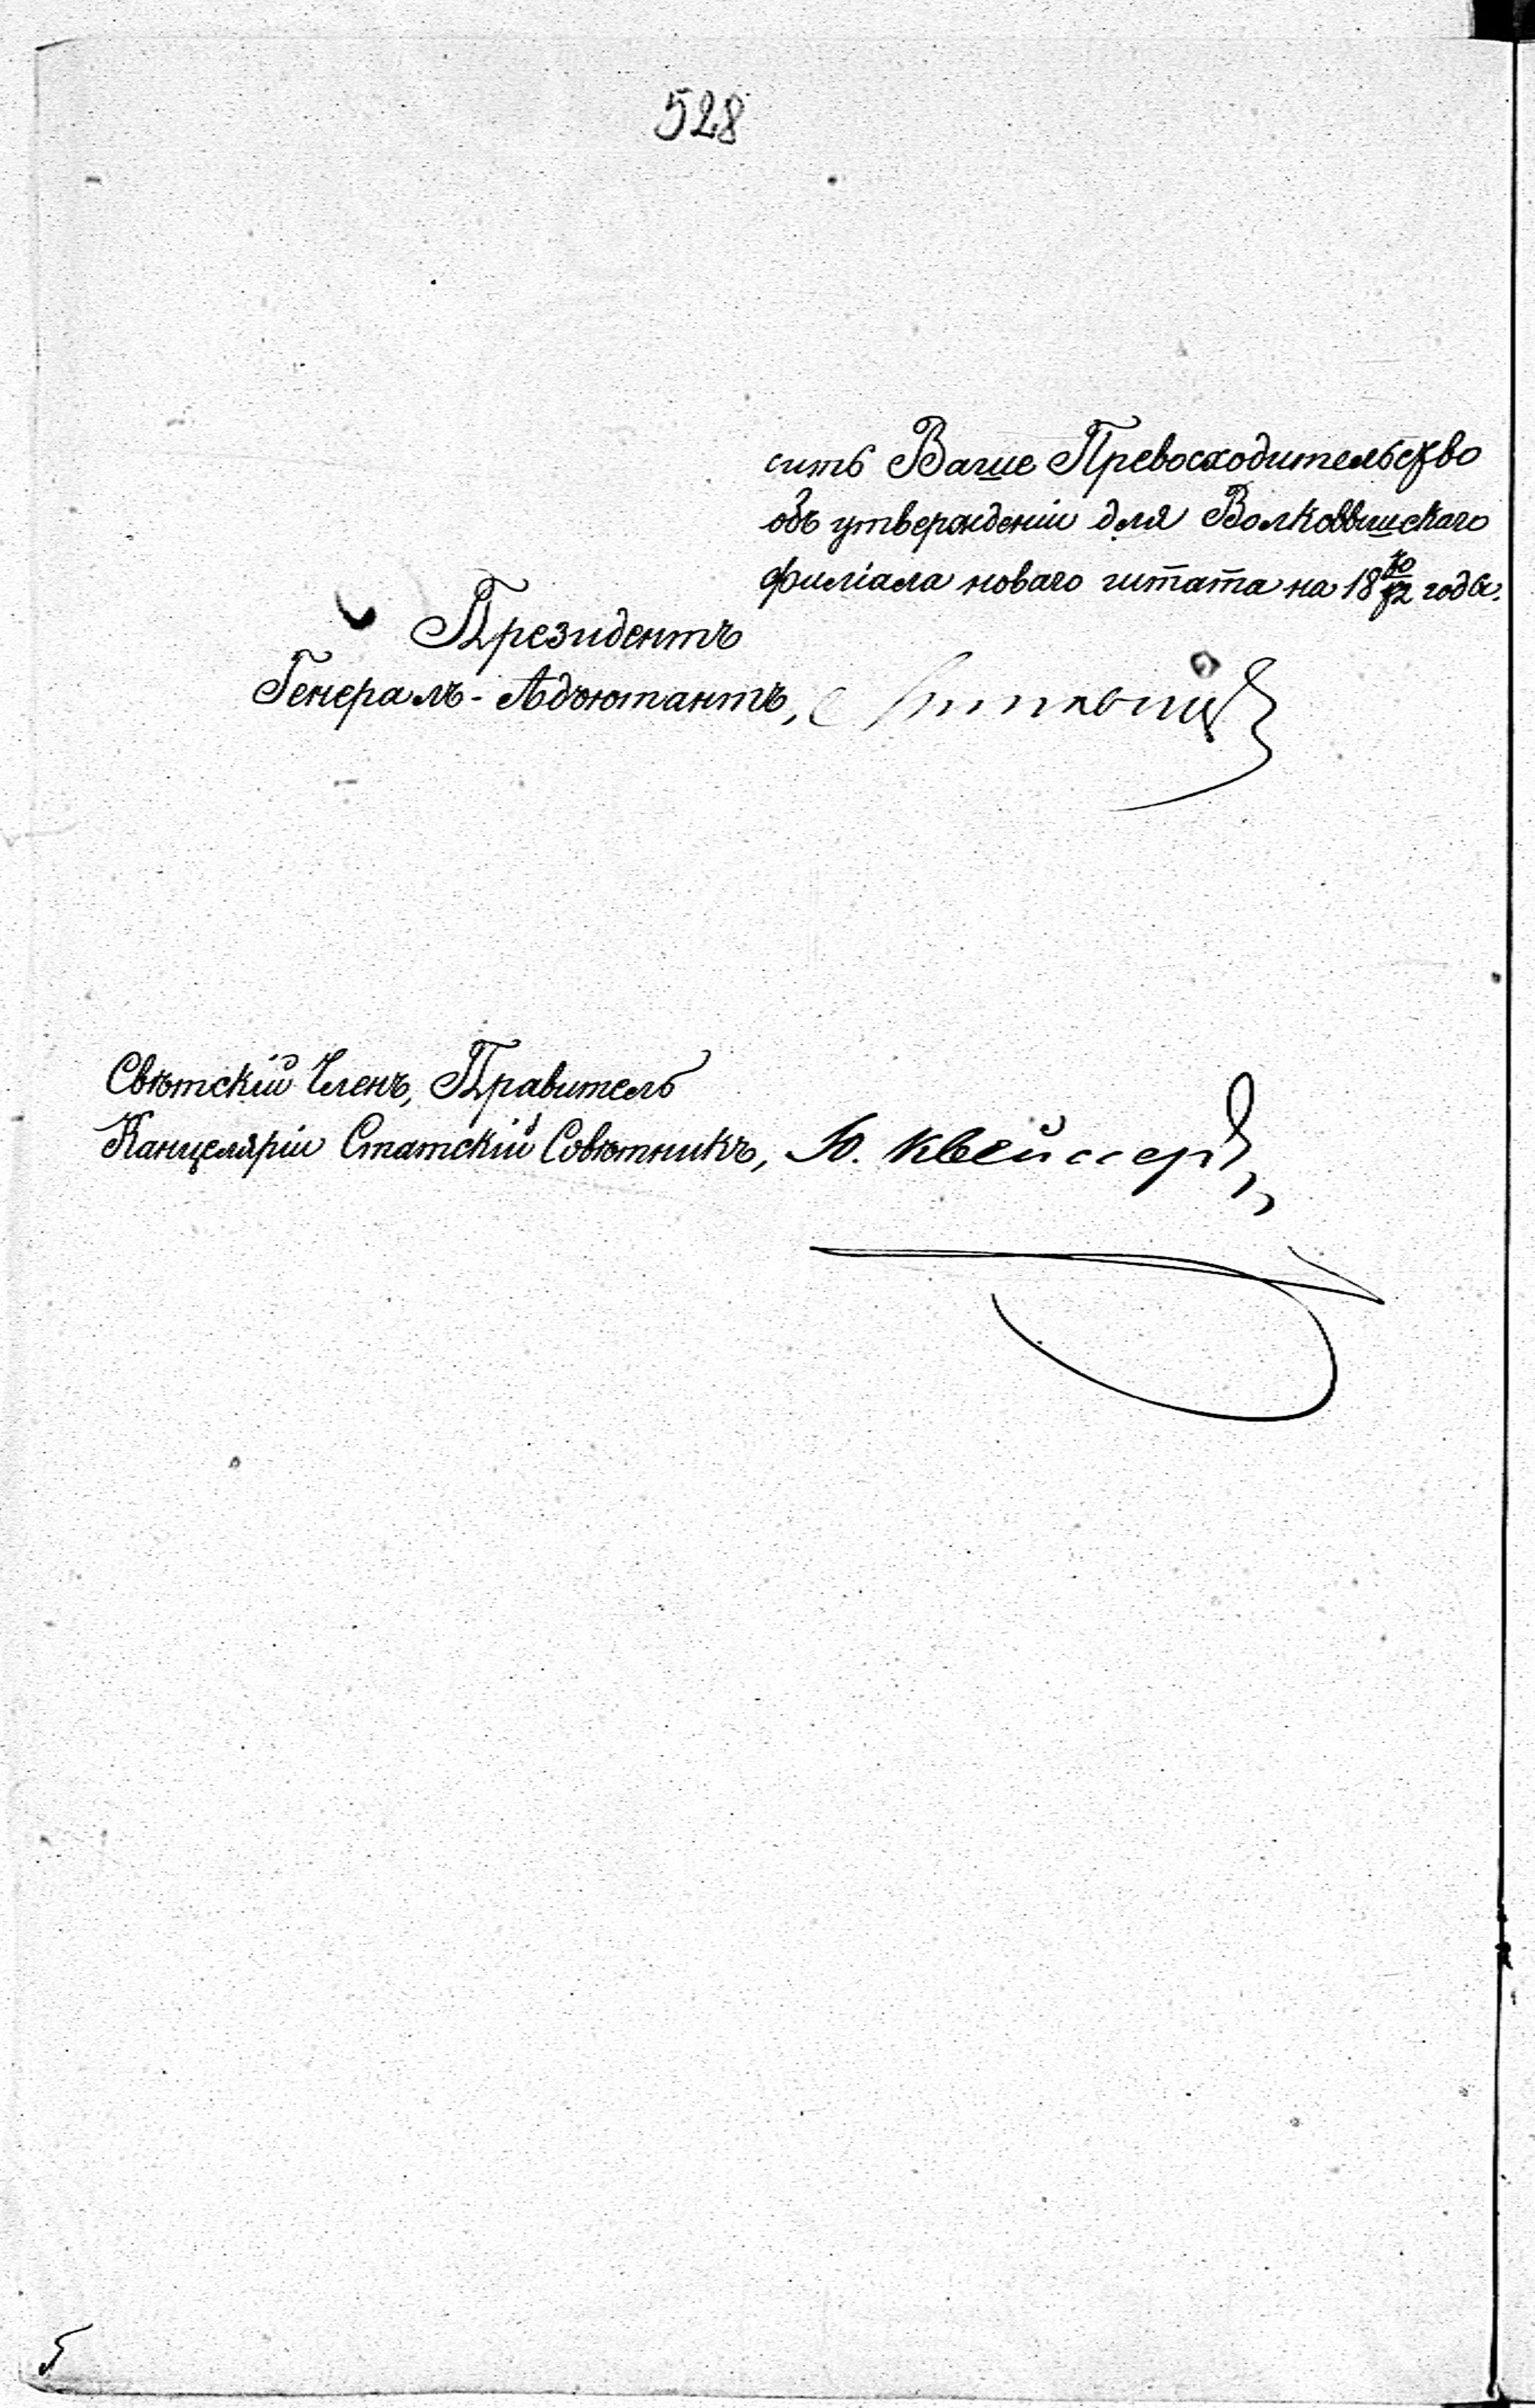 528
сить Ваше Превосходительство
объ утвержденіи для Волковышскаго
филіала новаго штата на 18 70/72 года.
Президентъ
Генералъ-Адъютантъ,
Свѣтскій Членъ, Правитель
Канцеляріи Статскій Совѣтникъ, Ю. Квейссеръ